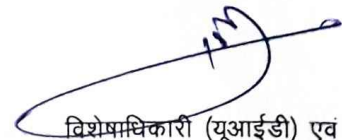 विशेषाधिकारी (यूआईडी) एवं